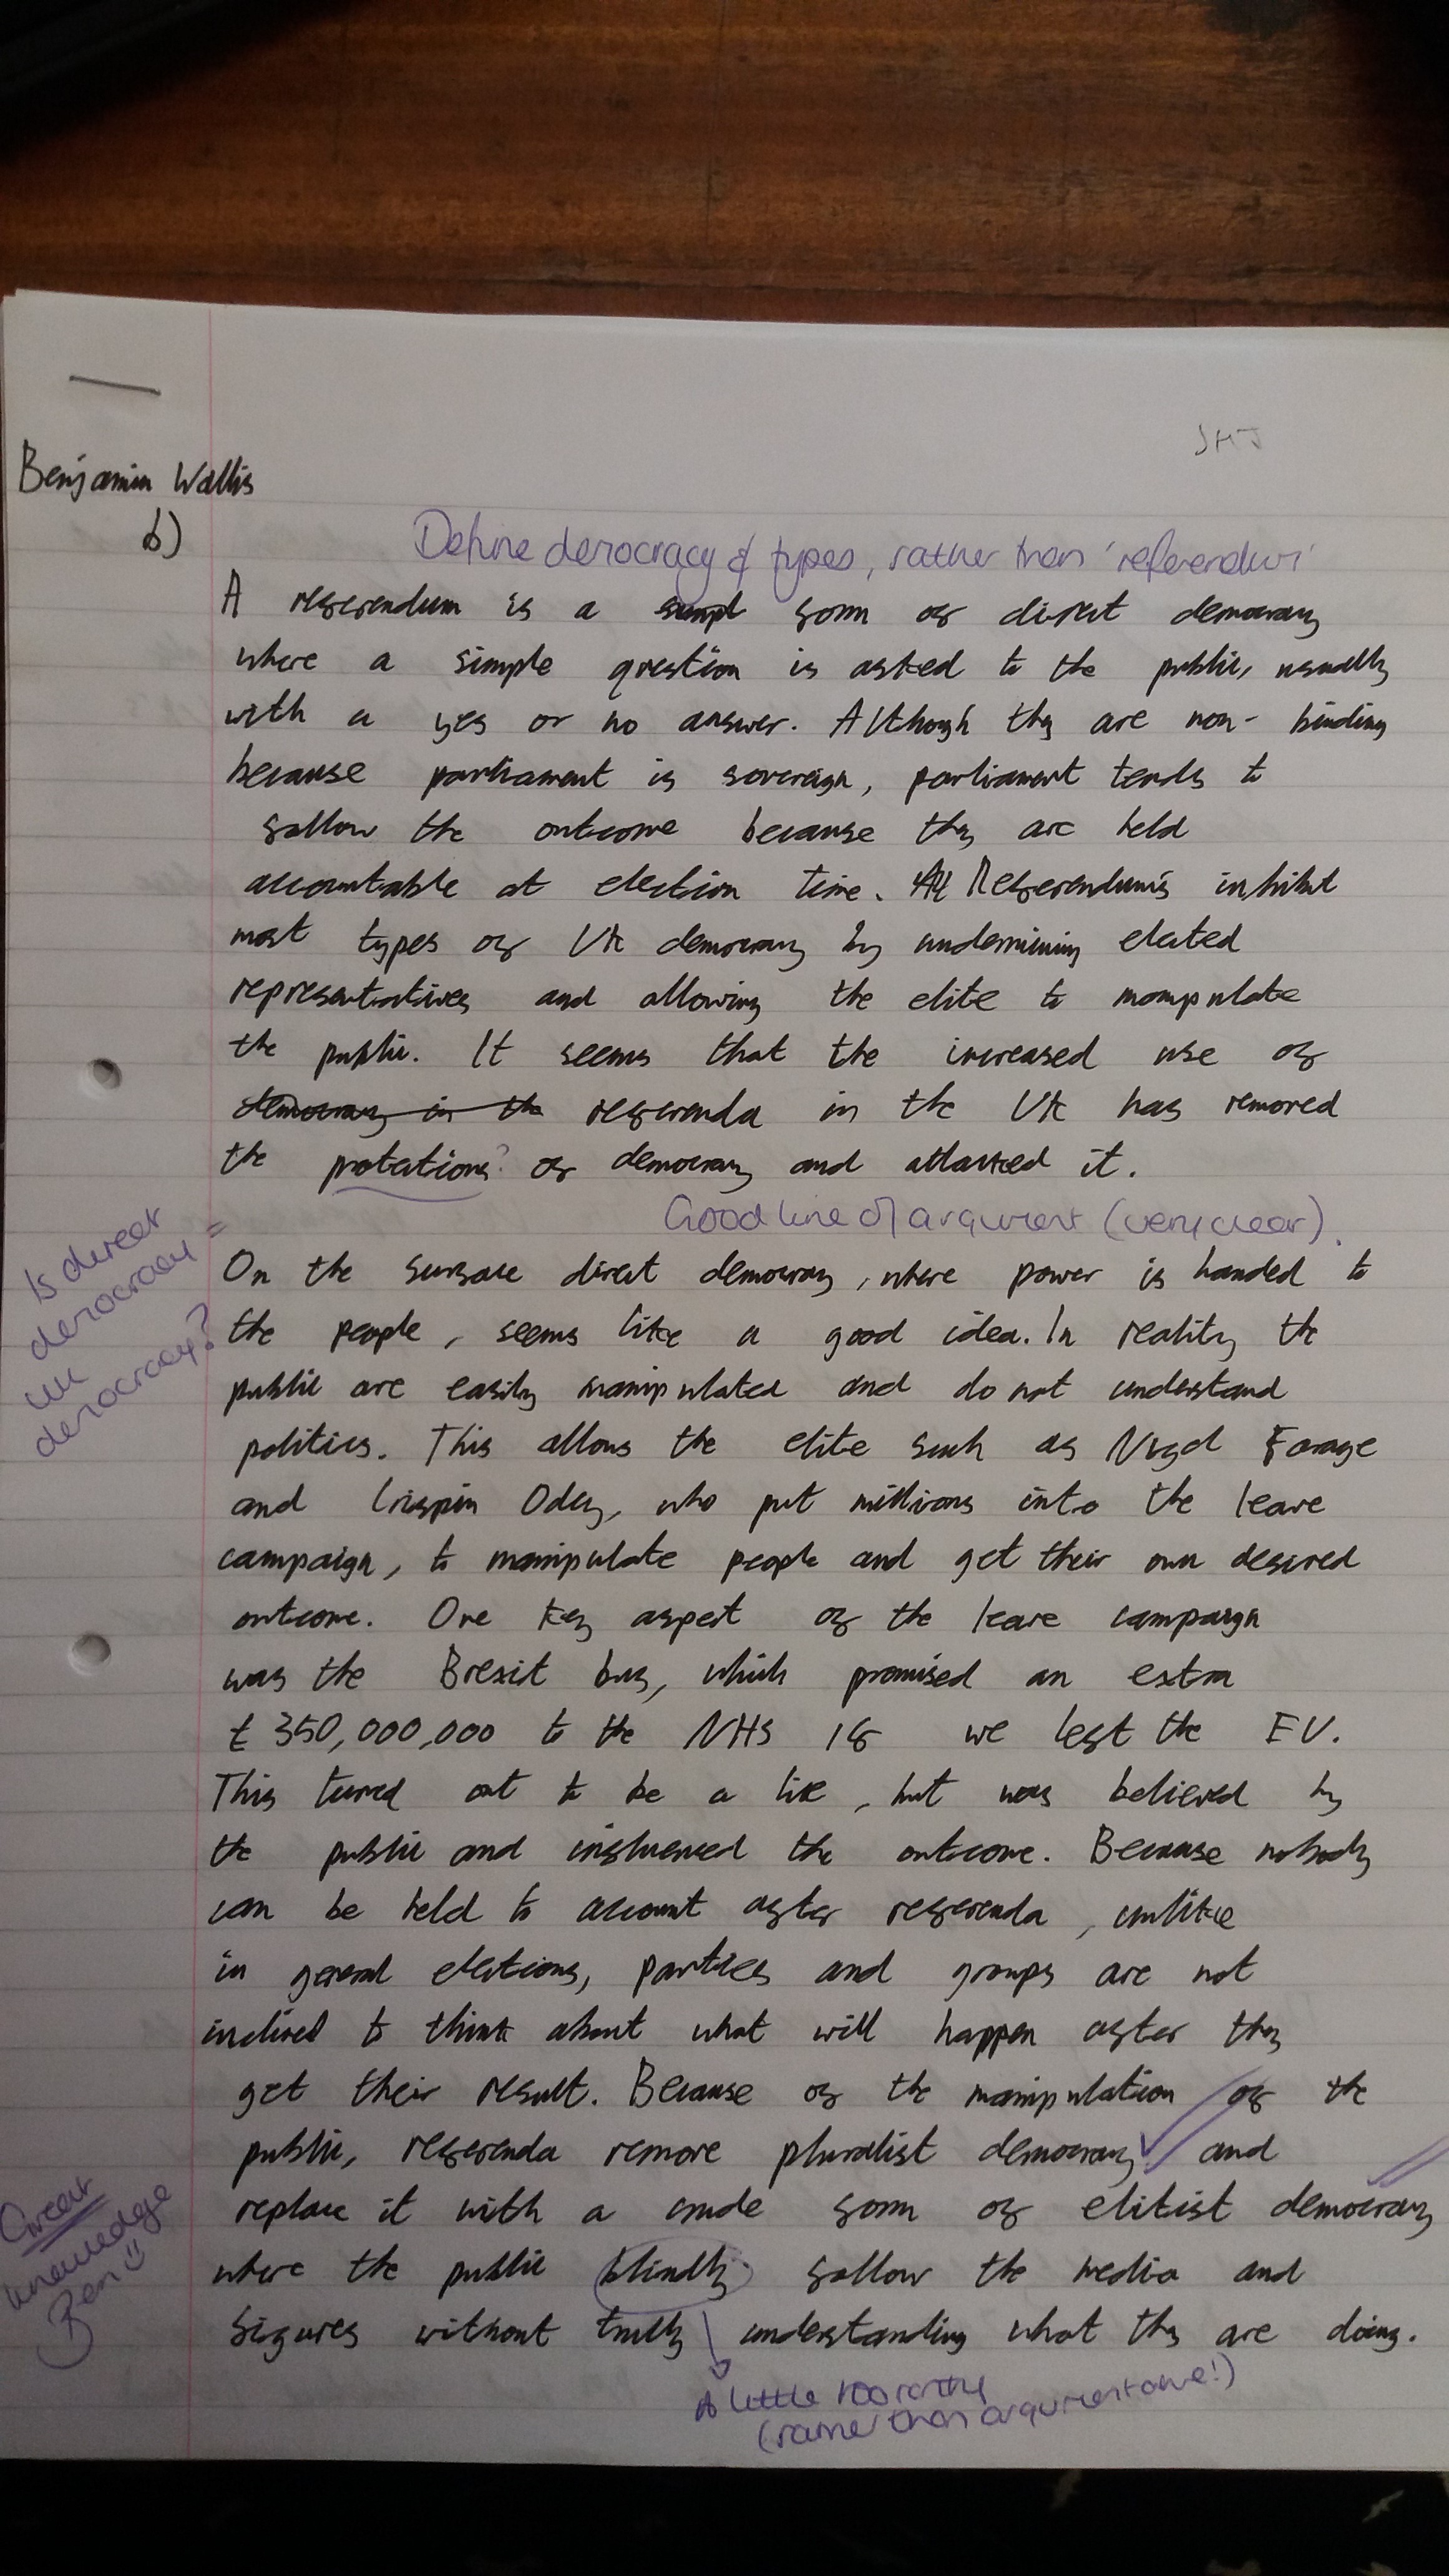 SHJ
Benjamin Wallis
b)
Define democracy & types, rather than 'referendum'
A referendum is a simpl form of direct democracy
where a simple question is asked to the public, usually
with a yes or no answer. Although they are non-binding
because parliament is sovereign, parliament tends to
follow the outcome because they are held
accountable at election time. All Referendums inhibit
most types of UK democracy by undermining elected
representatives and allowing the elite to manipulate
the public. It seems that the increased use of
democracy in the referenda in the UK has removed
the protections? of democracy and attacked it.
Good line of argument (very clear).
Is direct
democracy =
UK
democracy?
On the surface direct democracy, where power is handed to
the people, seems like a good idea. In reality the
public are easily manipulated and do not understand
politics. This allows the elite such as Nigel Farage
and Crispin Odey, who put millions into the leave
campaign, to manipulate people and get their own desired
outcome. One key aspect of the leave campaign
was the Brexit bus, which promised an extra
£350,000,000 to the NHS if we left the EU.
This turned out to be a lie, but was believed by
the public and influenced the outcome. Because nobody
can be held to account after referenda, unlike
in general elections, parties and groups are not
inclined to think about what will happen after they
get their result. Because of the manipulation of the
public, referenda remove pluralist democracy and
replace it with a crude form of elitist democracy
where the public blindly follow the media and
figures without truly understanding what they are doing.
Great
knowledge
Ben
A little too ranty
(rather than argumentative!)